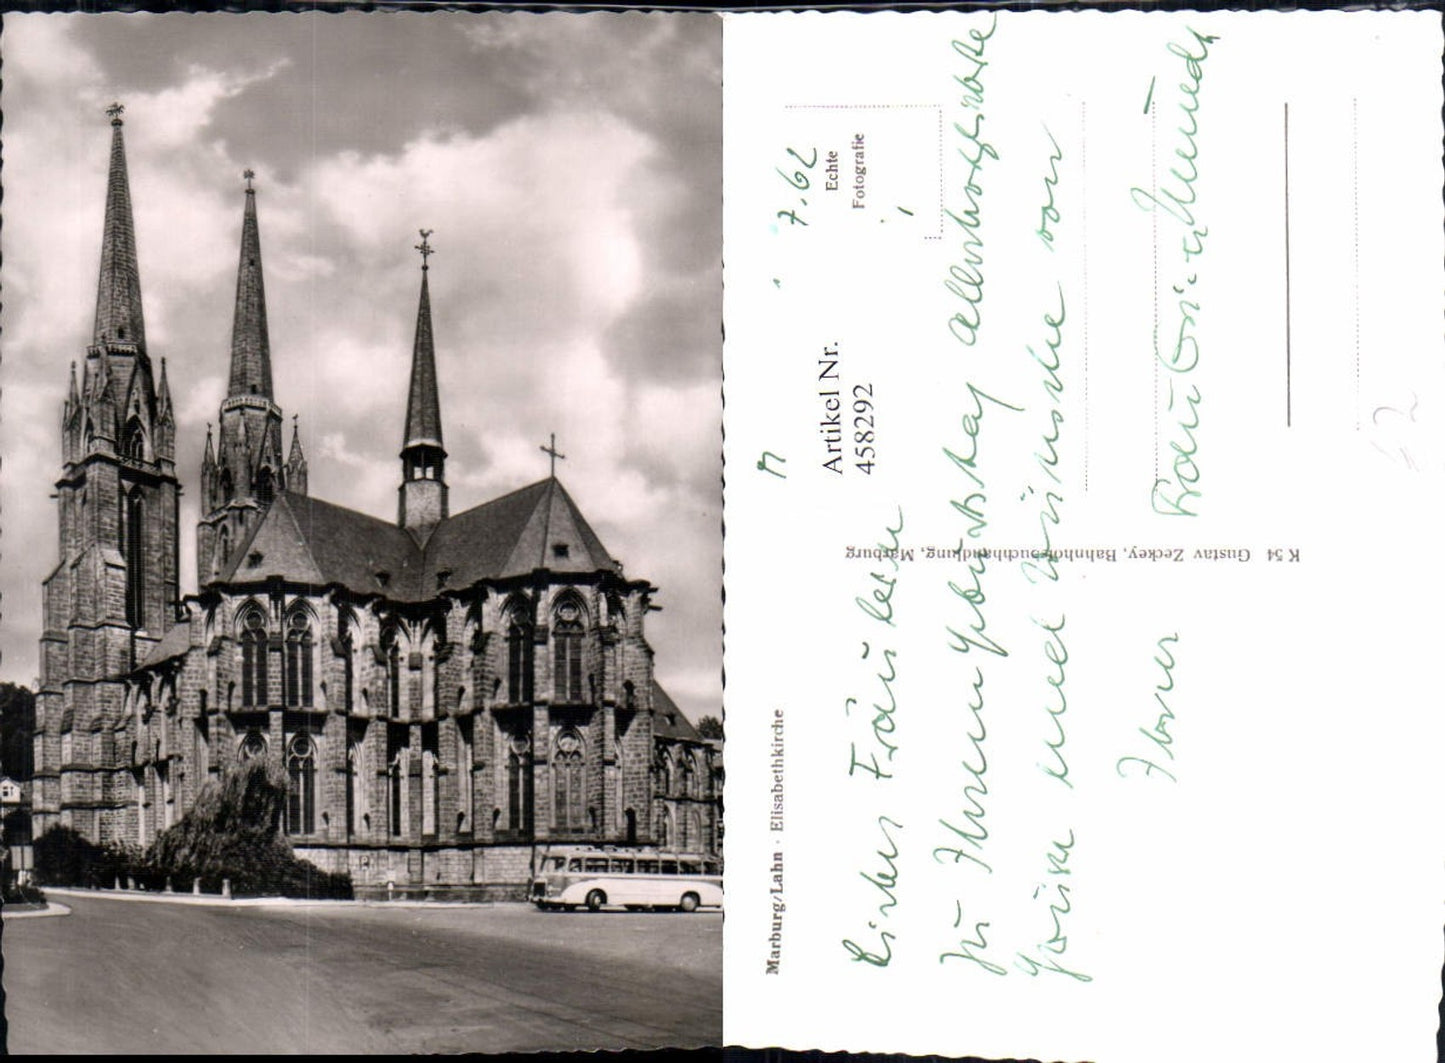 Marburg/Lahn · Elisabethkirche
7.62
Echte
Fotografie
Artikel Nr.
458292
Liebes Fräulein
Zu Ihrem Geburtstag allerherzlichste
Grüße und Wünsche von
Ihrer
Frau
K 54 Gustav Zeckey, Bahnhofsbuchhandlung, Marburg